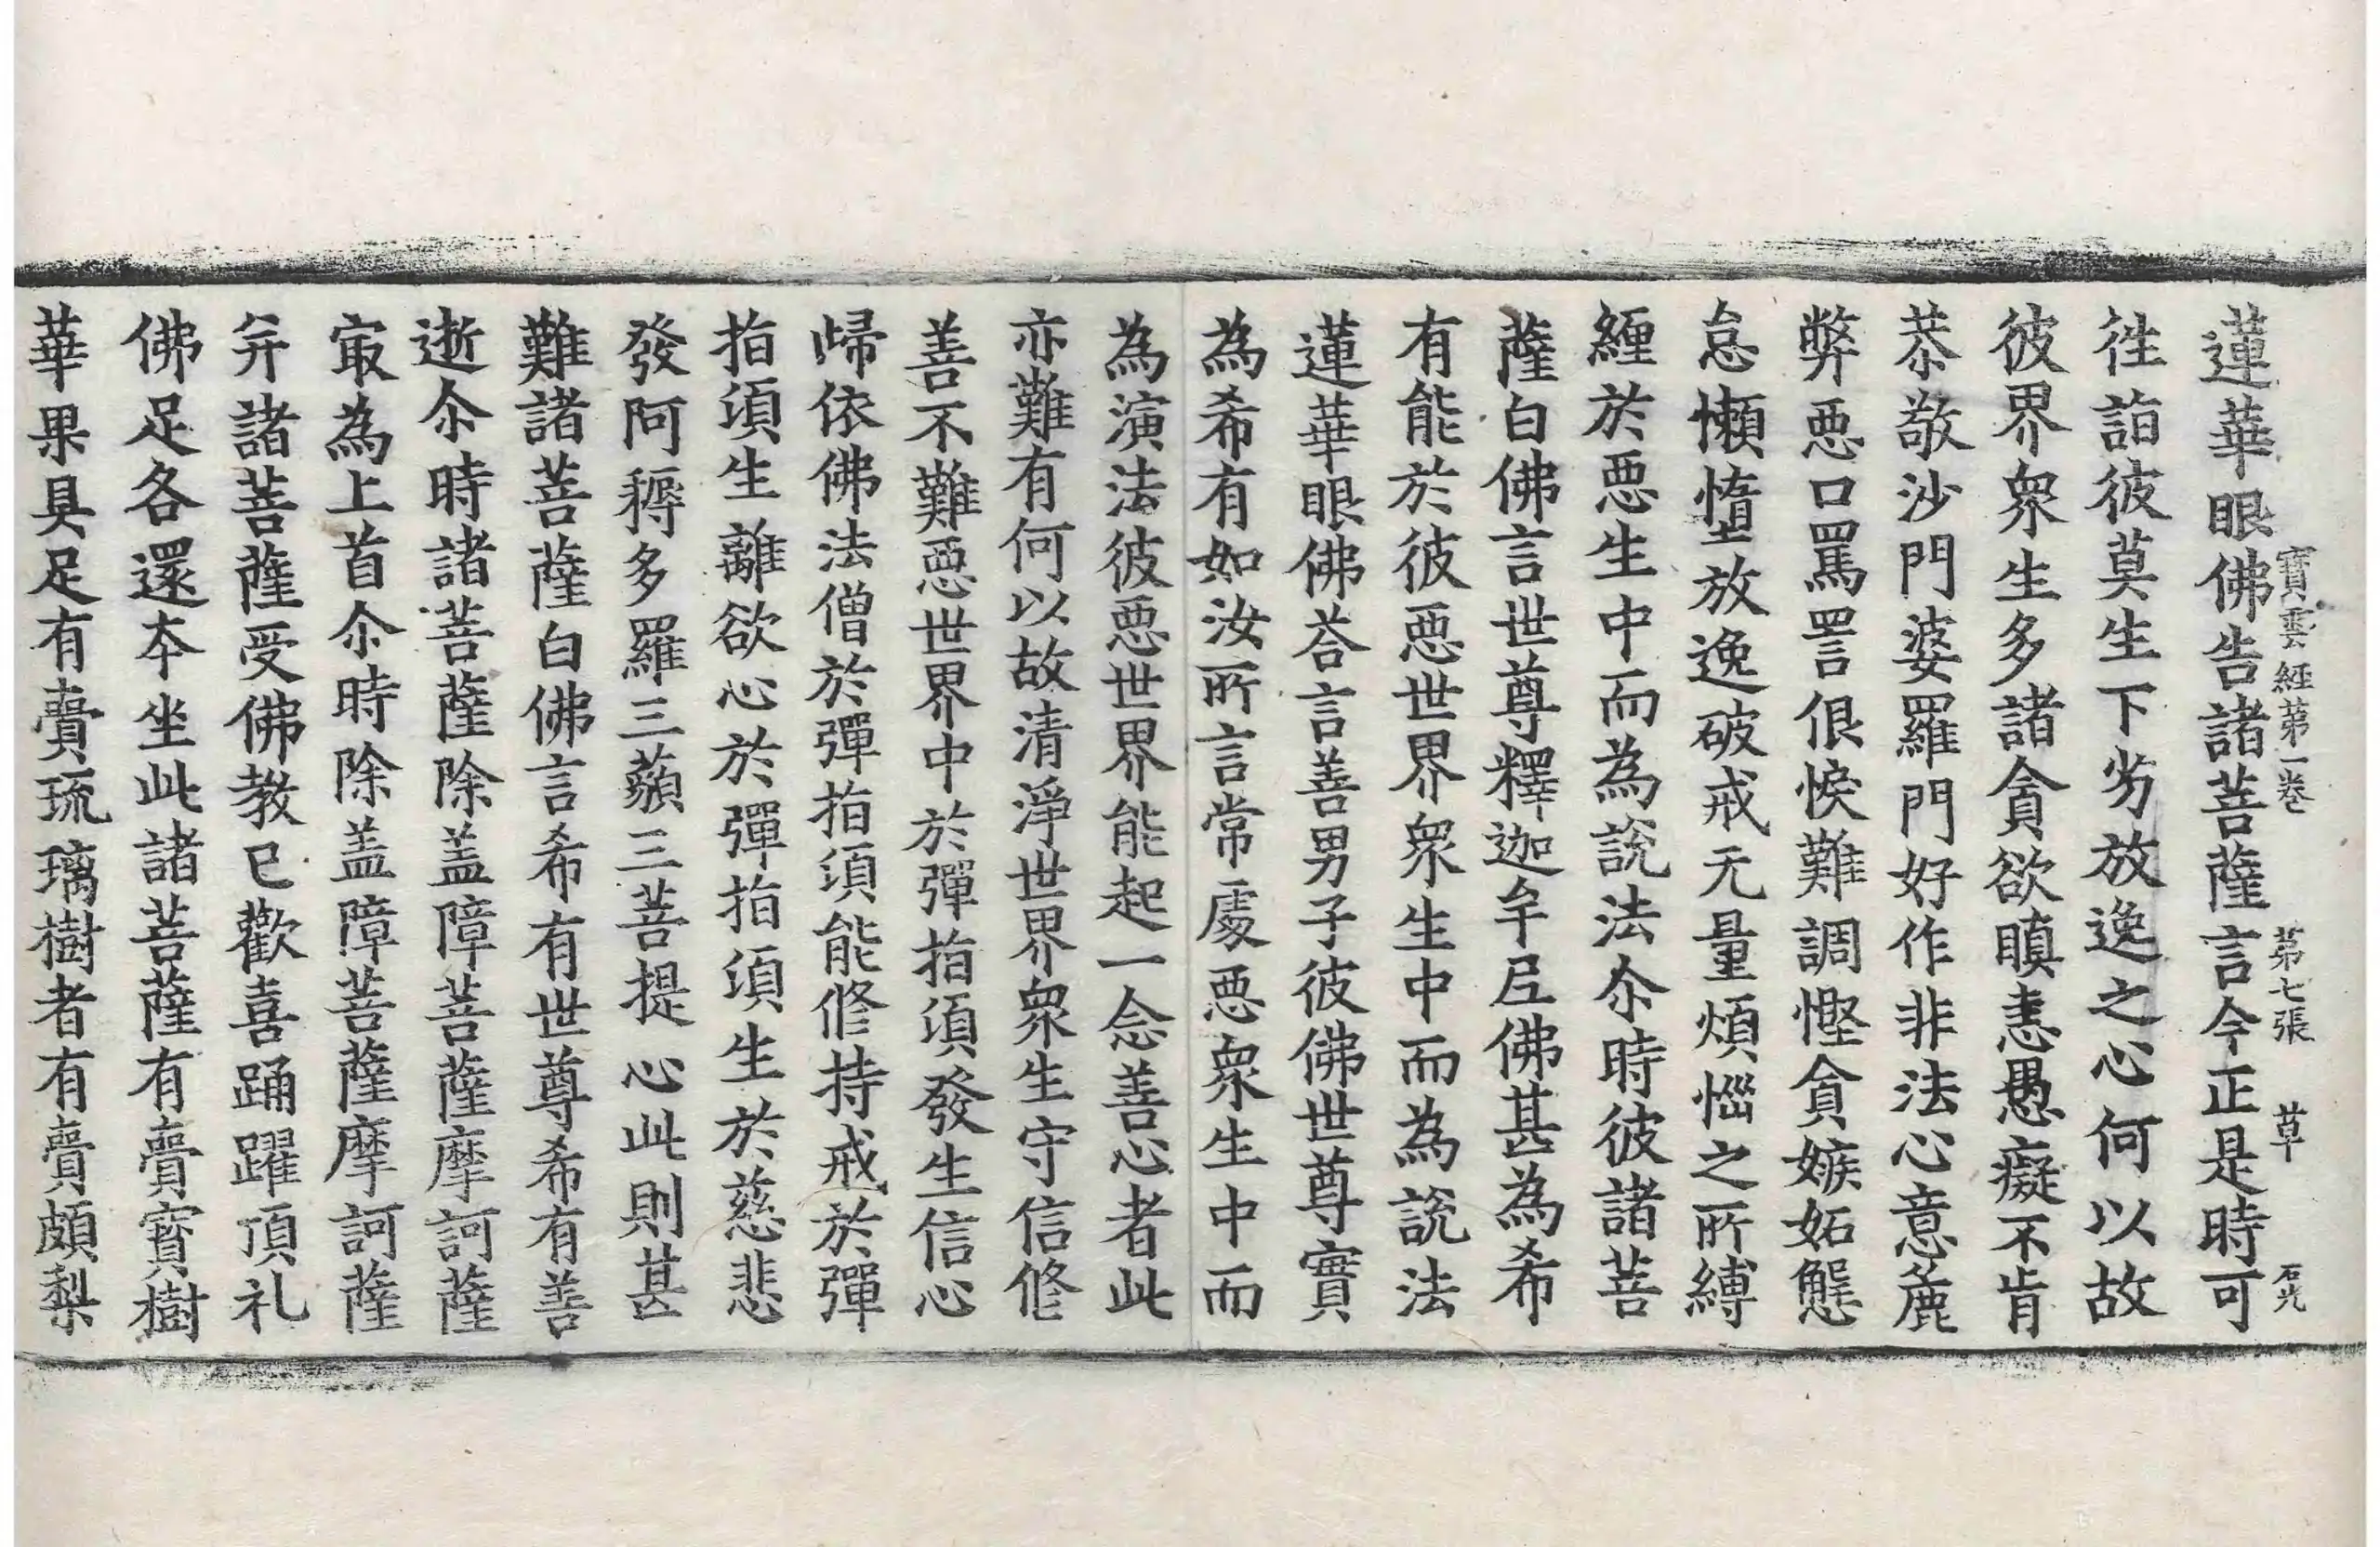 寶雲經第一卷 第七張 草 石光
蓮華眼佛告諸菩薩言今正是時可
徃詣彼莫生下劣放逸之心何以故
彼界衆生多諸貪欲瞋恚愚癡不肯
恭敬沙門婆羅門好作非法心意麁
弊惡口罵詈佷悷難調慳貪嫉妬懈
怠懶惰放逸破戒无量煩惱之所縛
纏於惡生中而為說法尒時彼諸菩
薩白佛言世尊釋迦牟尼佛甚為希
有能於彼惡世界衆生中而為說法
蓮華眼佛荅言善男子彼佛世尊實
為希有如汝所言常處惡衆生中而
為演法彼惡世界能起一念善心者此
亦難有何以故清淨世界衆生守信修
善不難惡世界中於彈指須發生信心
歸依佛法僧於彈指須能修持戒於彈
指須生離欲心於彈指須生於慈悲
發阿耨多羅三藐三菩提心此則甚
難諸菩薩白佛言希有世尊希有善
逝尒時諸菩薩除盖障菩薩摩訶薩
㝡為上首尒時除盖障菩薩摩訶薩
并諸菩薩受佛教已歡喜踊躍頂礼
佛足各還本坐此諸菩薩有賷寶樹
華果具足有賷琉璃樹者有賷頗梨